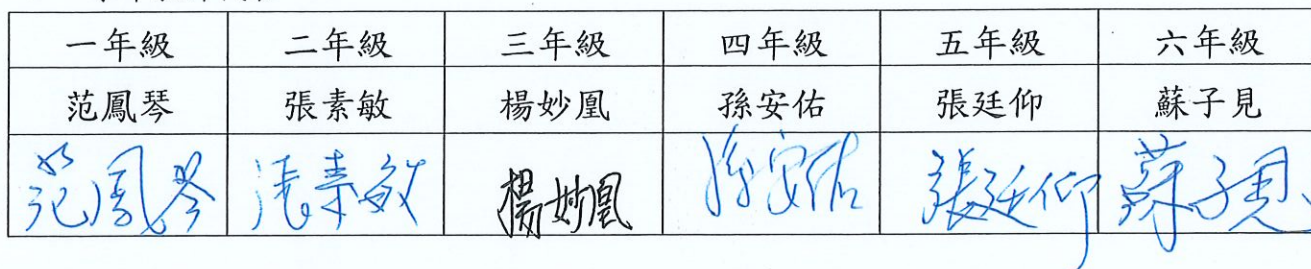 一年級 二年級 三年級 四年級 五年級 六年級
范鳳琴 張素敏 楊妙凰 孫安佑 張廷仰 蘇子見
范鳳琴 張素敏 楊妙凰 孫安佑 張廷仰 蘇子見